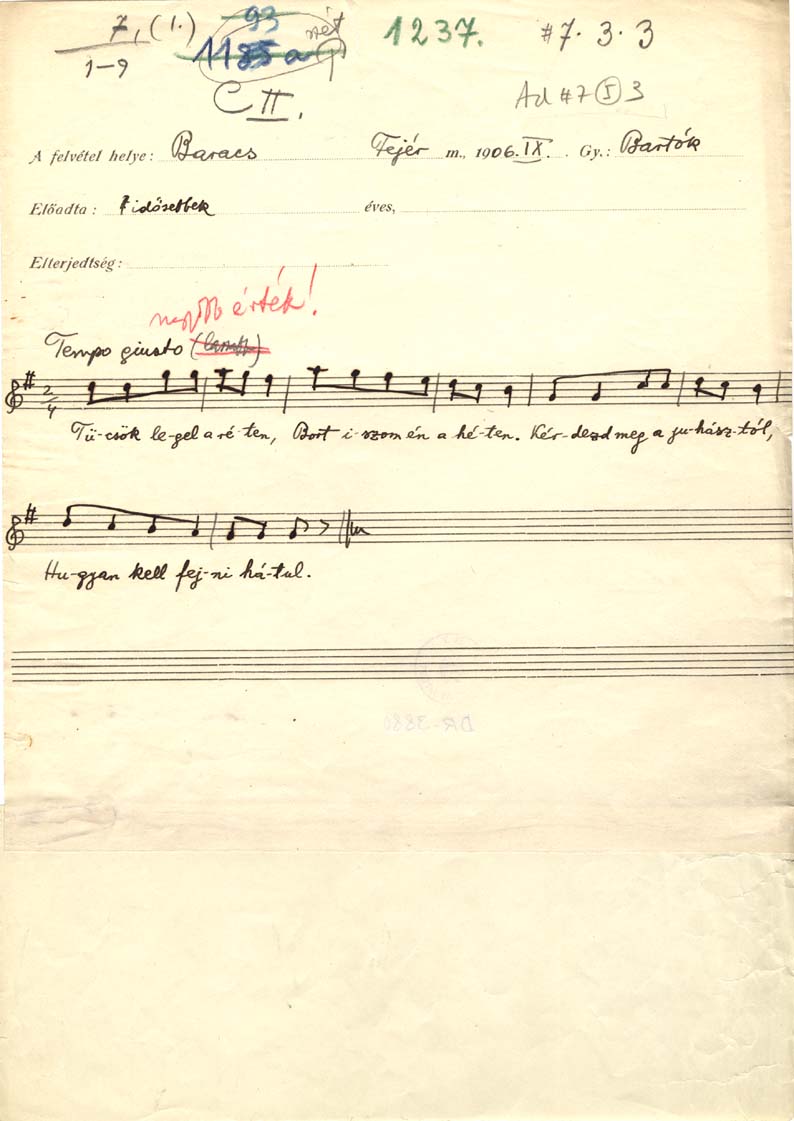 7, (1.) 93
1-9 1185a 1237. #7. 3. 3
C II. Ad #7 5 3
A felvétel helye: Baracs Fejér m., 1906. IX. Gy.: Bartók
Előadta: idősebbek éves,
Elterjedtség:
érték!
Tempo giusto
2/4
Tü-csök le-gel a ré-ten, Bort i-szom én a hé-ten. Kér-dezd meg a ju-hász-tól,
Hu-gyan kell fej-ni há-tul.
DR-3880